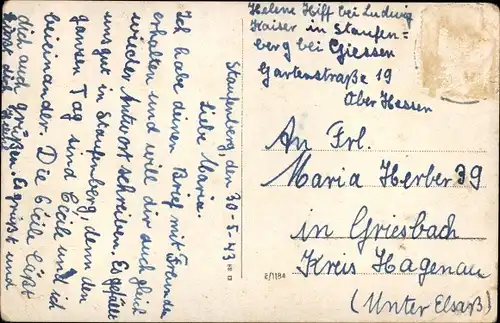 Staufenberg, den 30-5-43
Liebe Maria.
Ich habe deinen Brief mit Freunden
erhalten und will dir auch gleich
wieder Antwort schreiben. Es gefällt
uns gut in Staufenberg, denn den
ganzen Tag sind Cècile und ich
beieinander. Die Cècile läßt
dich auch grüßen. Es grüßt und
küsst dich
Helene Hiff bei Ludwig
Kaiser in Staufen=
berg bei Giessen
Gartenstraße 19
Ober Hessen
An Frl.
Maria Herber 39
in Griesbach
Kreis Hagenau
(Unter Elsaß)